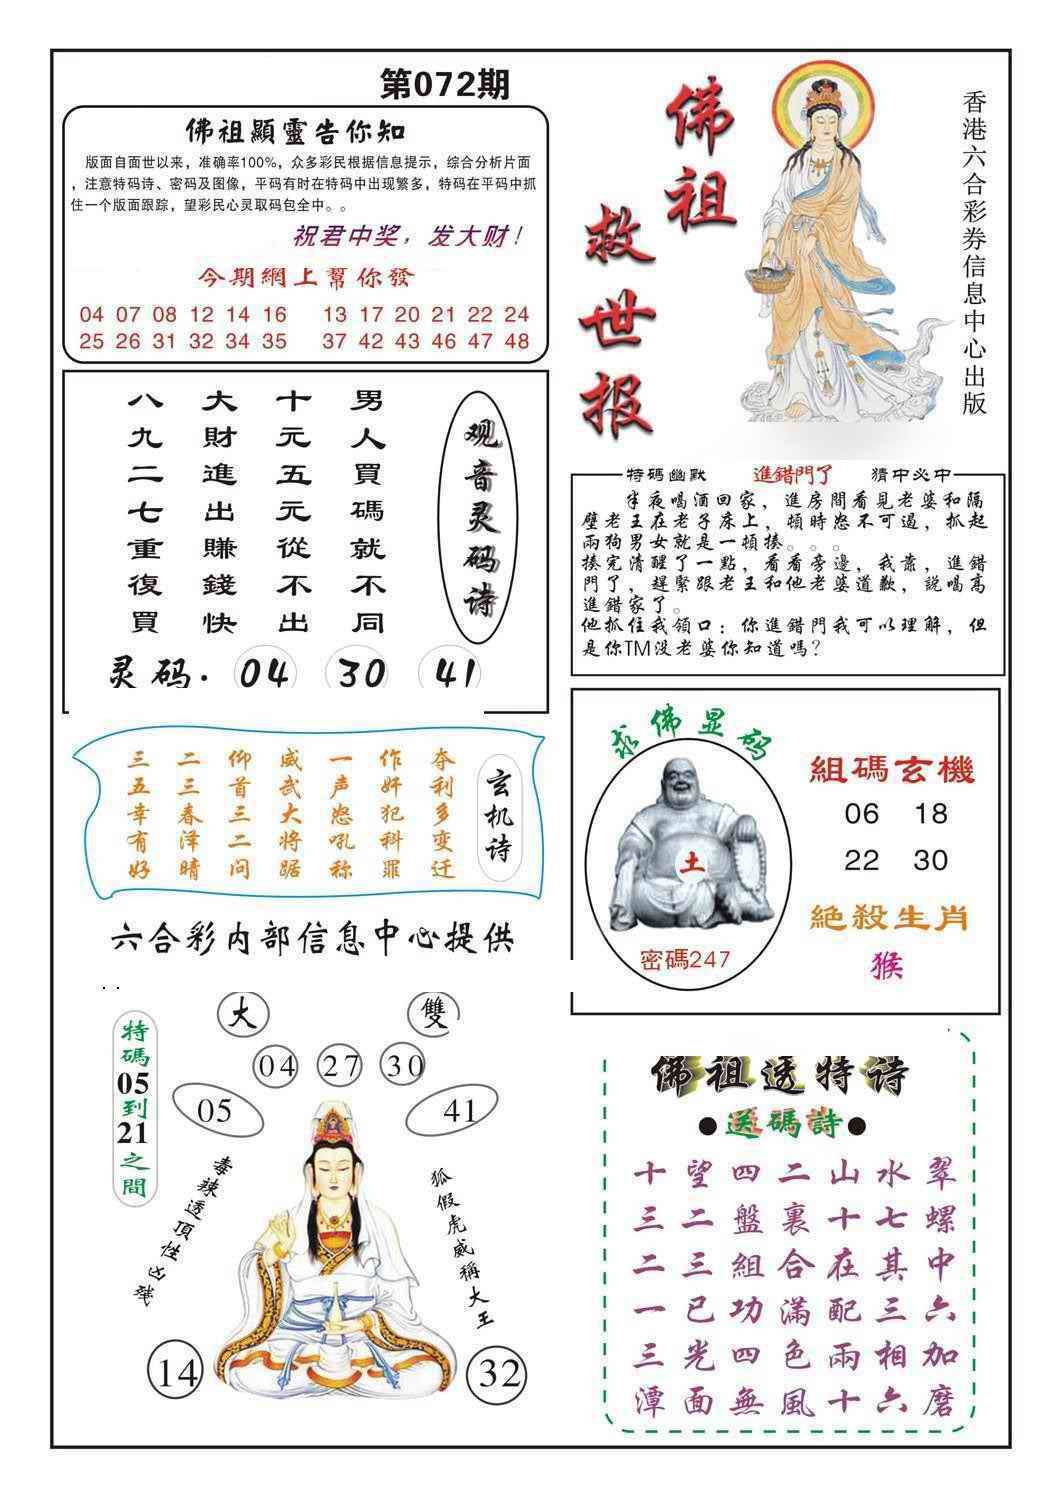 第072期
佛祖顯靈告你知
版面自面世以来，准确率100%，众多彩民根据信息提示，综合分析片面
，注意特码诗、密码及图像，平码有时在特码中出现繁多，特码在平码中抓
住一个版面跟踪，望彩民心灵取码包全中。。
祝君中奖，发大财！
今期網上幫你發
04 07 08 12 14 16 13 17 20 21 22 24
25 26 31 32 34 35 37 42 43 46 47 48
佛祖
救世报
香港六合彩券信息中心出版
观音灵码诗
男人買碼就不同
十元五元從不出
大財進出賺錢快
八九二七重復買
灵码. 04 30 41
特碼幽默 進錯門了 猜中必中
半夜喝酒回家，進房間看見老婆和隔
壁老王在老子床上，頓時怒不可遏，抓起
兩狗男女就是一頓揍。。。
揍完清醒了一點，看看旁邊，我靠，進錯
門了，趕緊跟老王和他老婆道歉，説喝高
進錯家了。
他抓住我領口：你進錯門我可以理解，但
是你TM没老婆你知道嗎？
玄机诗
夺利多变迁
作奸犯科罪
一声怒吼称
威武大将踞
仰首三二问
二三春泽晴
三五幸有好
六合彩内部信息中心提供
求佛显码
土
密碼247
組碼玄機
06 18
22 30
絕殺生肖
猴
大 雙
04 27 30
05 41
特碼05到21之間
毒辣透頂性凶残
狐假虎威稱大王
14 32
佛祖透特诗
●送碼詩●
翠螺中六加磨
水七其三相六
山十在配兩十
二裏合滿色風
四盤組功四無
望二三已光面
十三二一三潭